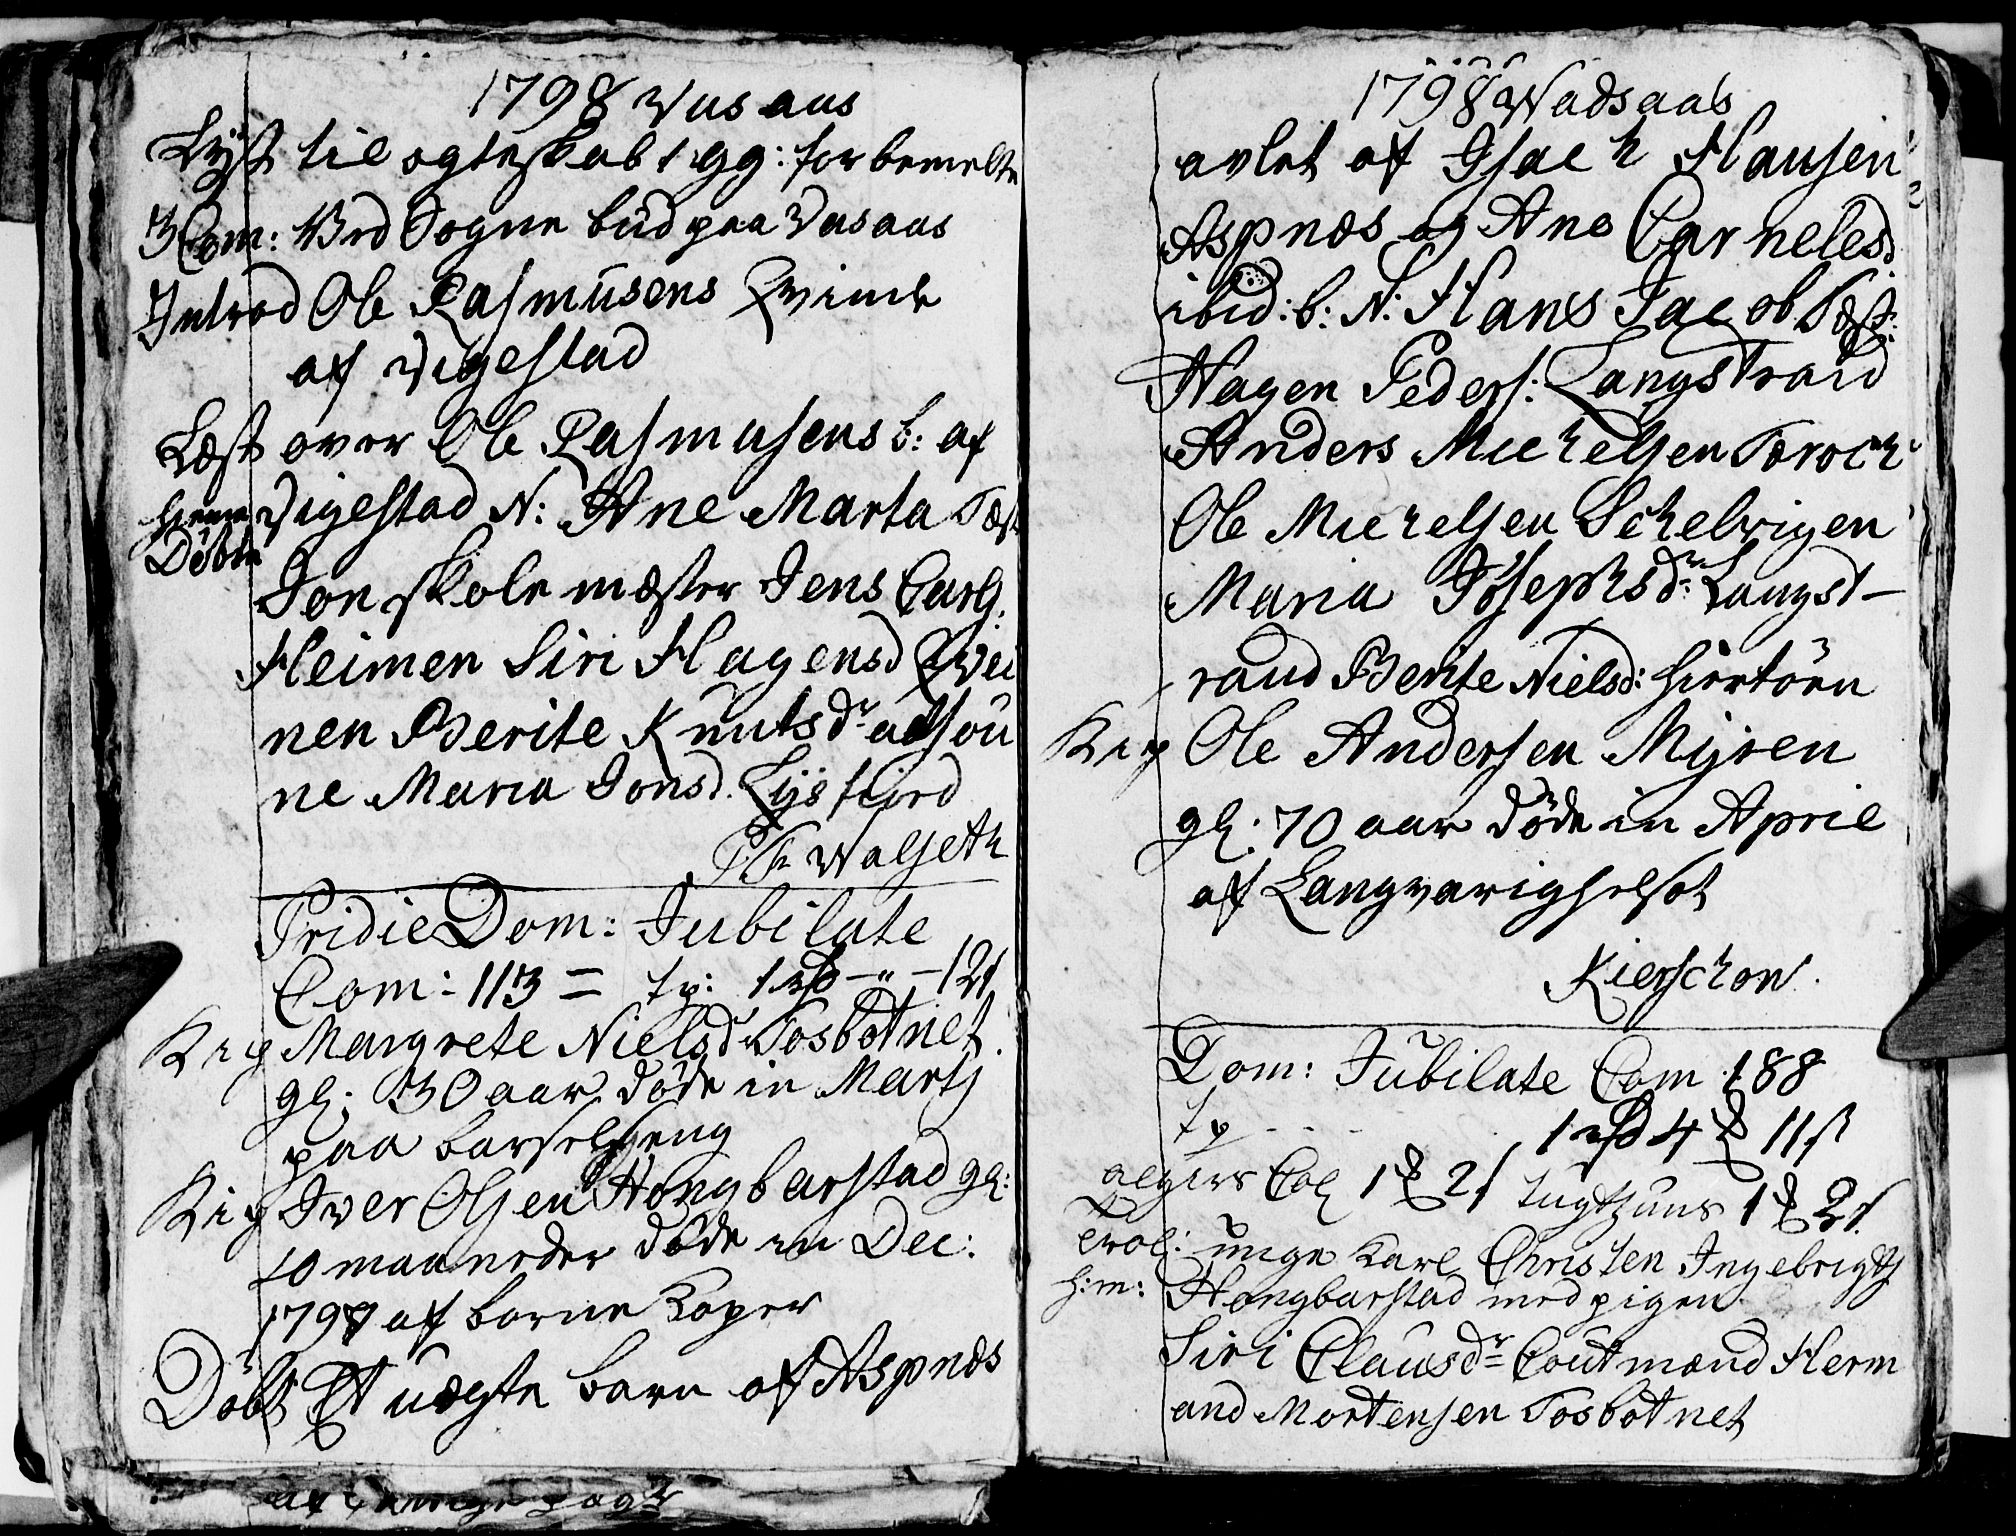 1798 Vus aas
Lyst til ægteskab 1 gg: forbemelte
3 Com: 43 ved Sogne bud paa Vusaas
Introd Ole Rasmusens Qvinde
af Vigestad
Læst over Ole Rasmusens b: af
hjemme Vigestad N: Ane Marta Test
Døbte
Jon skole mester Jens Carls.
Heimen Siri Hagensd Qvei
nen Berite Knutsdr
ne Maria Jonsd. Lysfiord
Walseth
Pridie Dom: Jubilate
Com: 113 = tp: 1 rd - " - 12 s
Kig Margrete Nielsdr Tosbotnet
gl: 30 aar døde in Martj
paa barselseng
Kig Iver Olsen Hongbarstad gl:
10 maaneder døde in Dec:
1797 af borne Koper
Døbt Et uægte barn af Aspnæs
1798 Wadsaas
avlet af Isach Hansen
Aspnæs og Ane Carnelesd
ibid: b: N: Hans Jacob Test:
Hagen Peders: Langstrand
Anders Michelsen Toroch
Ole Michelsen Schelvigen
Maria Josephsdr Langst-
rand Berite Nielsd: Hiortøen
Kig Ole Andersen Myren
gl: 70 aar døde in April
af Langvarig helsot
Kierschow.
Dom: Jubilate Com 188
tp - - - 1 rd 4 ℔ 11 ß
algiers Col 1 ℔ 2 s tugthuus 1 ℔ 2 s
trol: unge Karl Christen Ingebrigts
h:m: Hongbarstad med pigen
Siri Clausdr Coutmand Herm
and Mortensen Tosbotnet